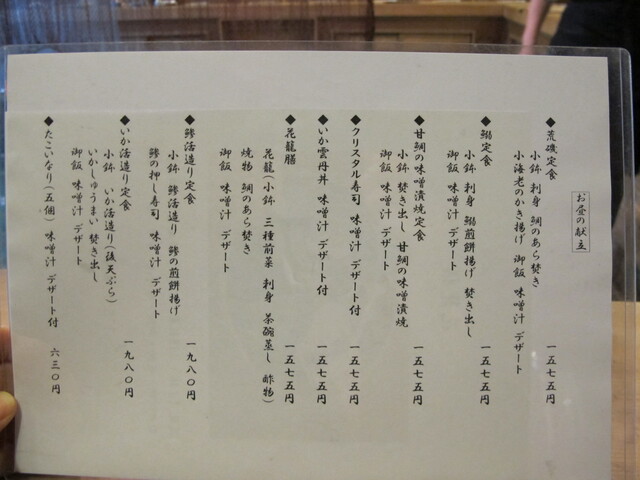 お昼の献立
◆荒磯定食 一五七五円
小鉢 刺身 鯛のあら焚き
小海老のかき揚げ 御飯 味噌汁 デザート
◆鰯定食 一五七五円
小鉢 刺身 鰯煎餅揚げ 焚き出し
御飯 味噌汁 デザート
◆甘鯛の味噌漬焼定食 一五七五円
小鉢 焚き出し 甘鯛の味噌漬焼
御飯 味噌汁 デザート
◆クリスタル寿司 味噌汁 デザート付 一五七五円
◆いか雲丹丼 味噌汁 デザート付 一五七五円
◆花籠膳 一五七五円
花籠(小鉢 三種前菜 刺身 茶碗蒸し 酢物)
焼物 鯛のあら焚き
御飯 味噌汁 デザート
◆鯵活造り定食 一九八〇円
小鉢 鯵活造り 鯵の煎餅揚げ
鯵の押し寿司 味噌汁 デザート
◆いか活造り定食 一九八〇円
小鉢 いか活造り(後天ぷら)
いかしゅうまい 焚き出し
御飯 味噌汁 デザート
◆たこいなり(五個) 味噌汁 デザート付 六三〇円